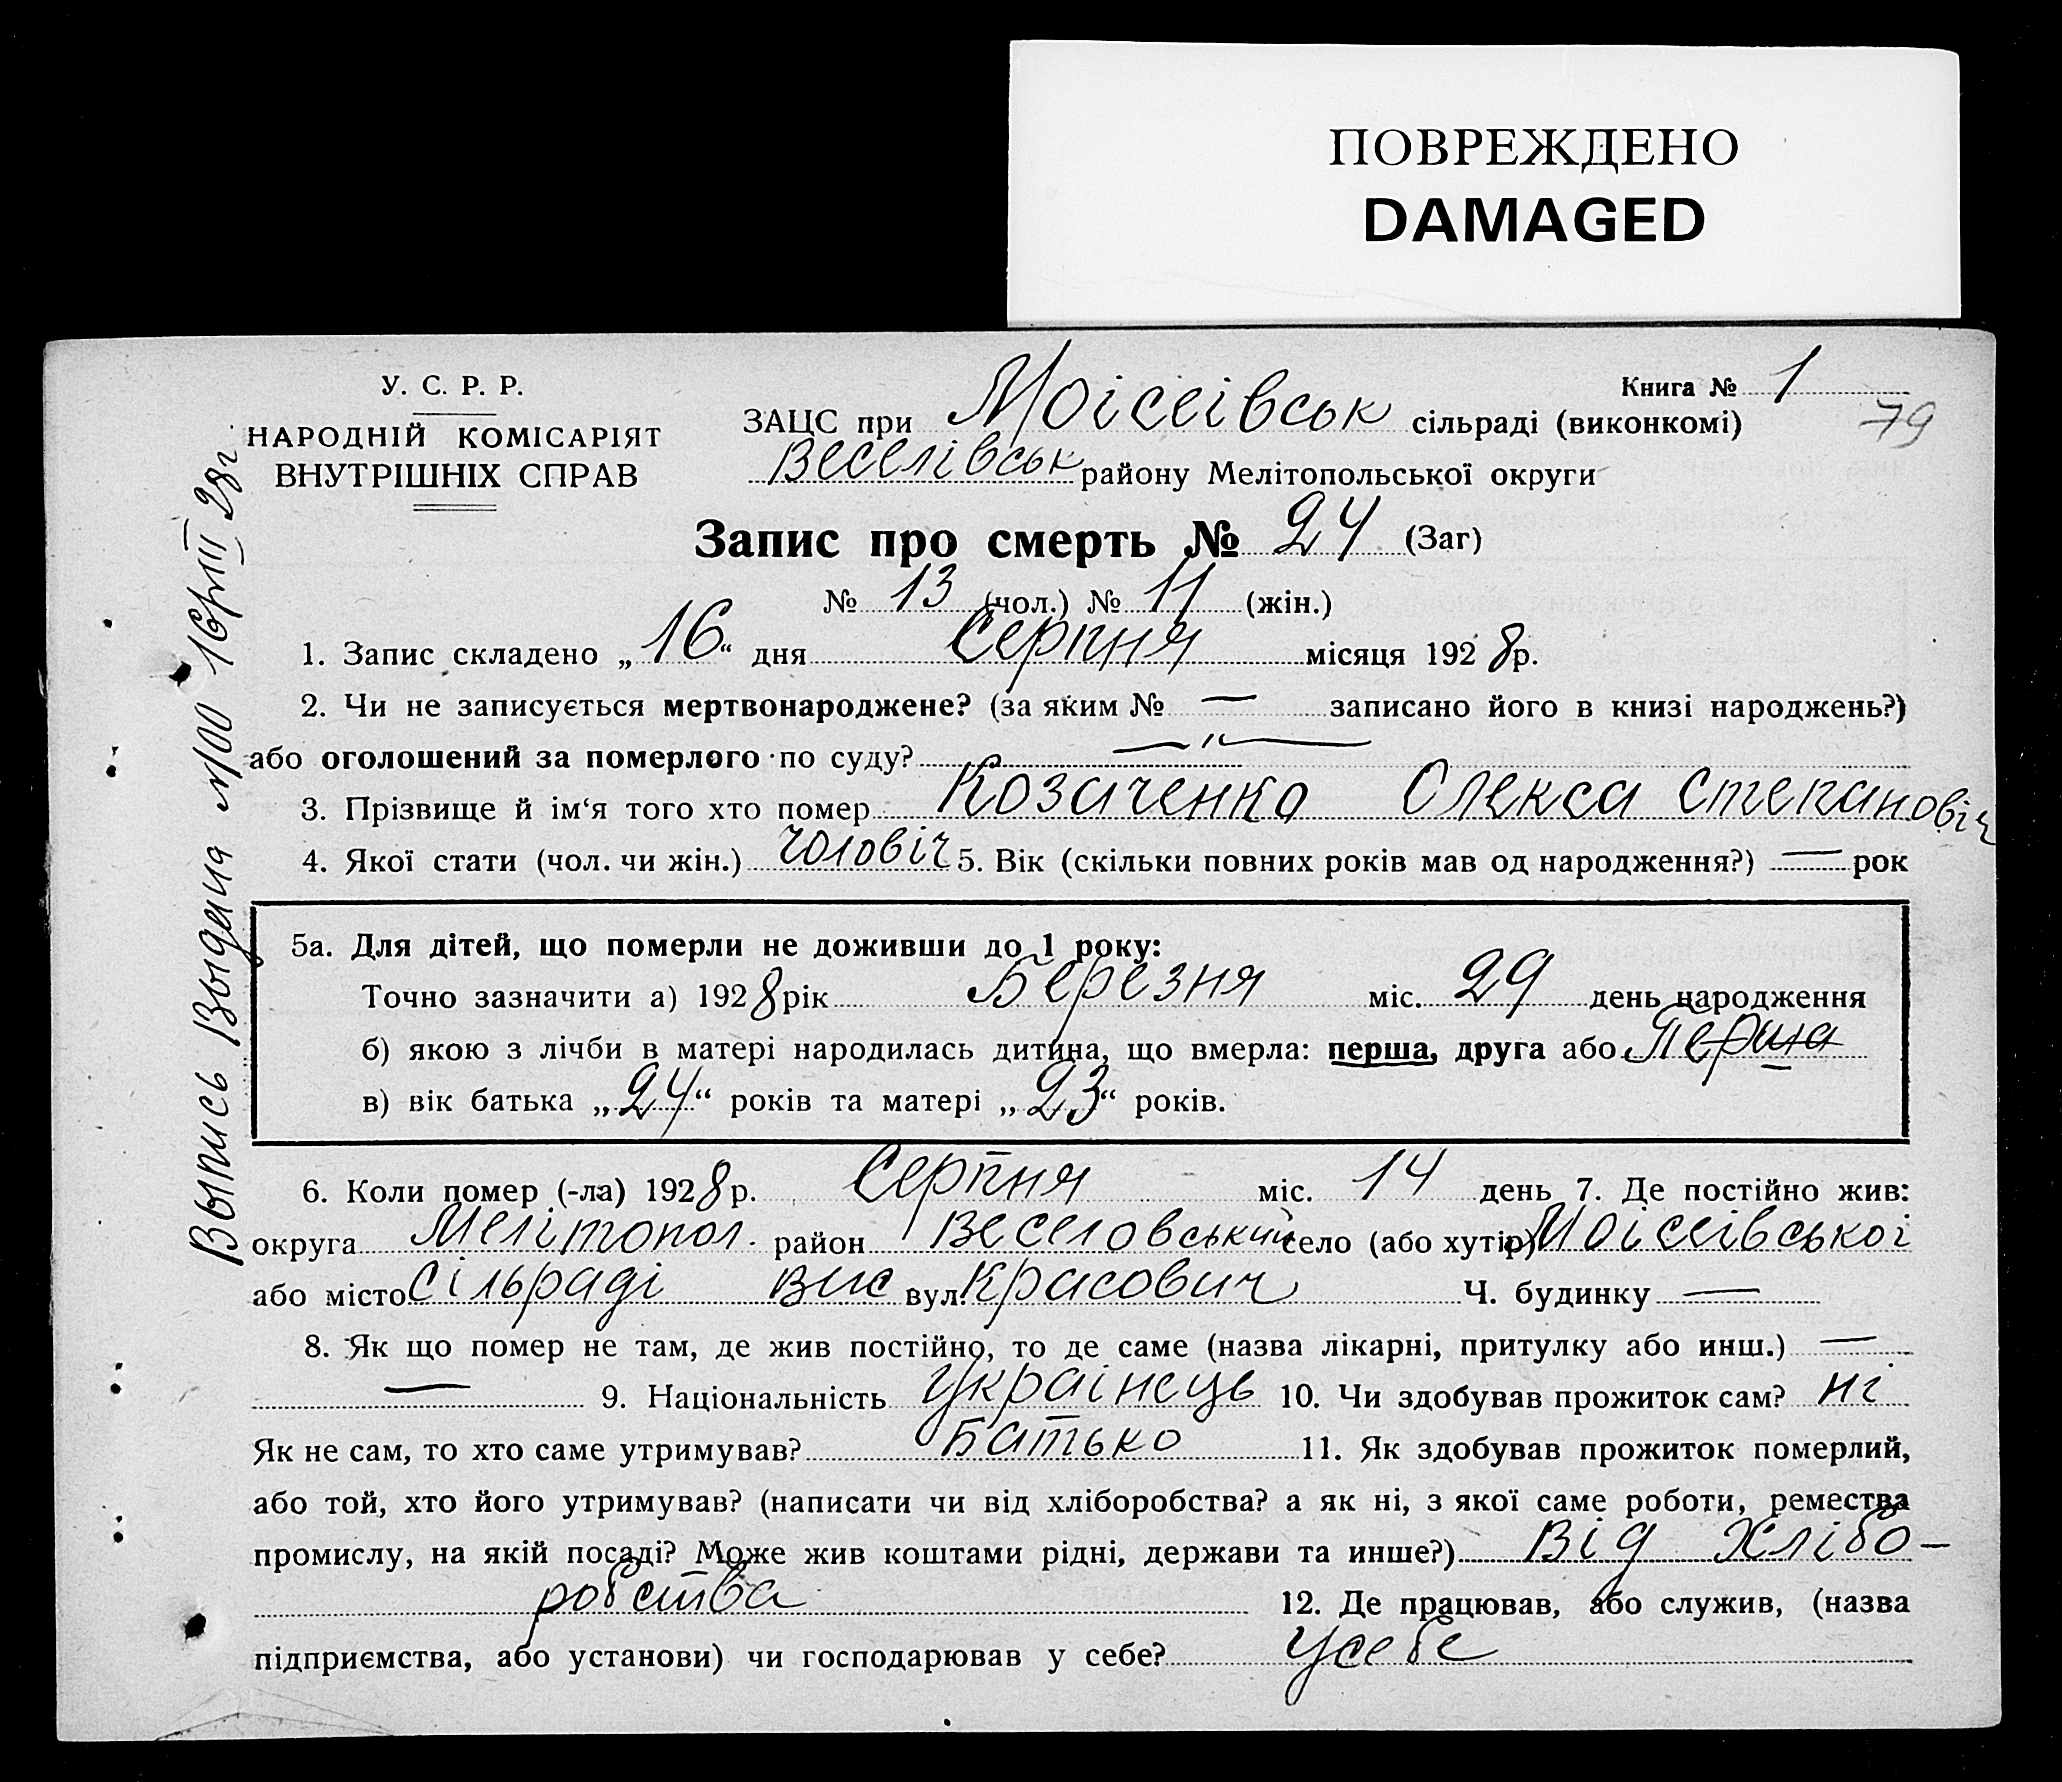 ПОВРЕЖДЕНО
DAMAGED
У. С. Р. Р.
НАРОДНІЙ КОМІСАРІЯТ
ВНУТРІШНІХ СПРАВ
Книга № 1
79
ЗАЦС при Моісеівськ сільраді (виконкомі)
Веселівськ району Мелітопольської округи
Запис про смерть № 24 (Заг)
№ 13 (чол.) № 11 (жін.)
1. Запис складено „16“ дня Серпня місяця 1928 р.
2. Чи не записується мертвонароджене? (за яким № — записано його в книзі народжень?)
або оголошений за померлого по суду? — " —
3. Прізвище й ім‘я того хто помер Козаченко Олекса Степановіч
4. Якої стати (чол. чи жін.) чоловіч 5. Вік (скільки повних років мав од народження?) — рок
5а. Для дітей, що померли не доживши до 1 року:
Точно зазначити а) 1928 рік Березня міс. 29 день народження
б) якою з лічби в матері народилась дитина, що вмерла: перша, друга або перша
в) вік батька „24“ років та матері „23“ років.
6. Коли помер (-ла) 1928 р. Серпня міс. 14 день 7. Де постійно жив:
округа Мелітопол. район Веселовський село (або хутір) Моісеівськоі
або місто сільраді вис вул. Красович Ч. будинку —
8. Як що помер не там, де жив постійно, то де саме (назва лікарні, притулку або инш.) —
— 9. Національність Украінець 10. Чи здобував прожиток сам? ні
Як не сам, то хто саме утримував? Батько 11. Як здобував прожиток померлий,
або той, хто його утримував? (написати чи від хліборобства? а як ні, з якої саме роботи, ремества
промислу, на якій посаді? Може жив коштами рідні, держави та инше?) Від хлібо-
робства 12. Де працював, або служив, (назва
підприємства, або установи) чи господарював у себе? у себе
Выпись Выдана №100 16/VIII 28г.